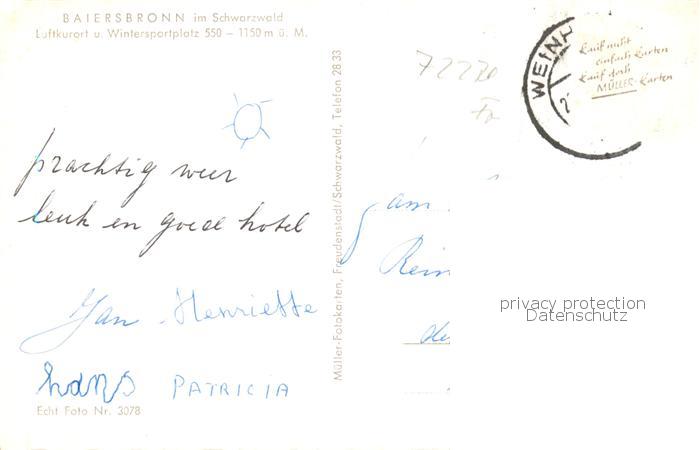 BAIERSBRONN im Schwarzwald
Luftkurort u. Wintersportplatz 550 – 1150 m ü. M.
prachtig weer
leuk en goed hotel
Jan Henriette
hans PATRICIA
Echt Foto Nr. 3078
Müller-Fotokarten, Freudenstadt/Schwarzwald, Telefon 28 33
WEIN
Kauf nicht
einfach Karten
Kauf doch
MÜLLER-Karten
Fam
Rein
de
privacy protection
Datenschutz